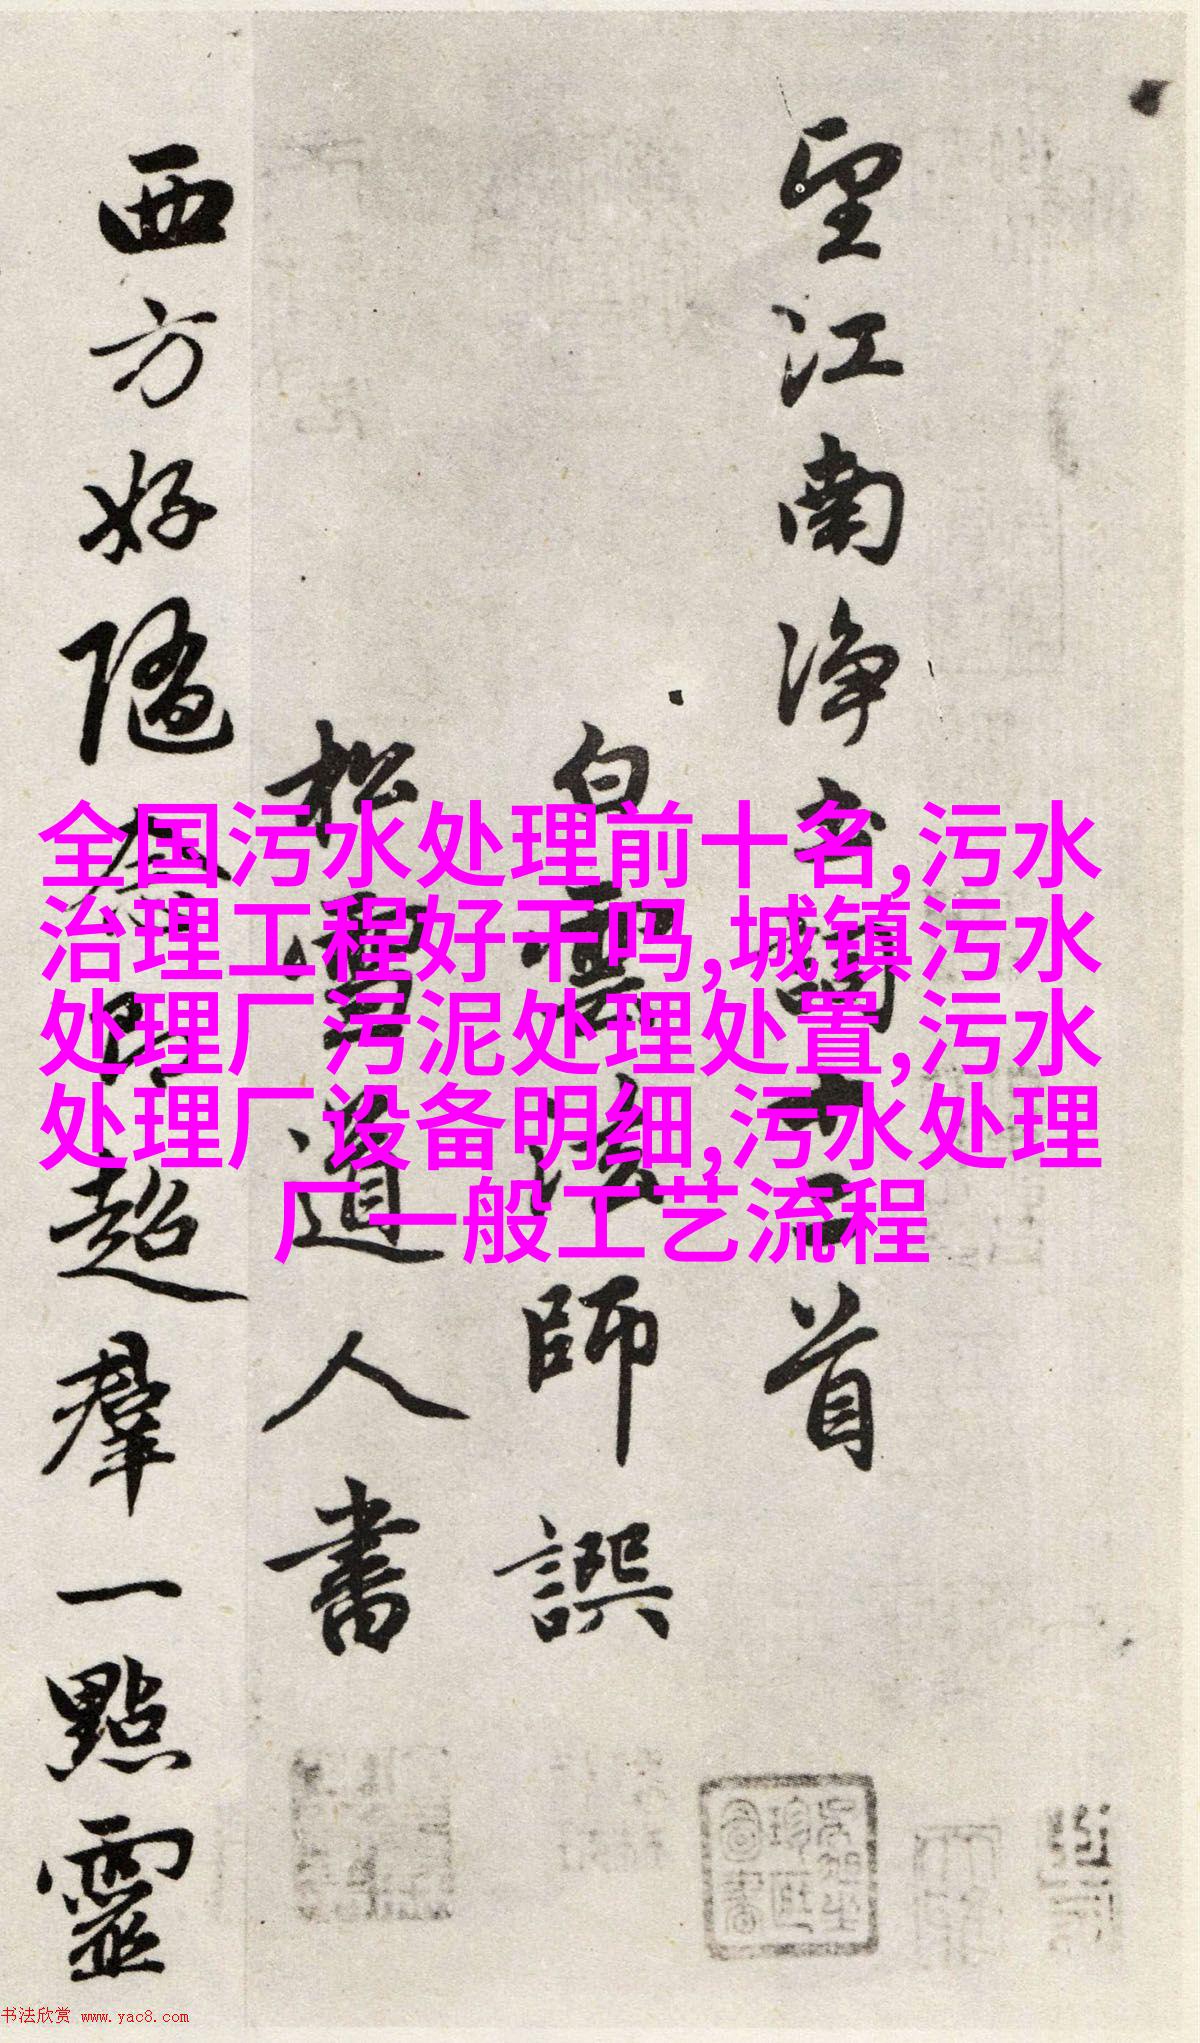 望江南净土词十二首
白雲法師譔
松雪道人書
西方好隨
超羣一點靈
全国污水处理前十名,污水
治理工程好干吗,城镇污水
处理厂污泥处理处置,污水
处理厂设备明细,污水处理
厂一般工艺流程
书法欣赏 www.yac8.com